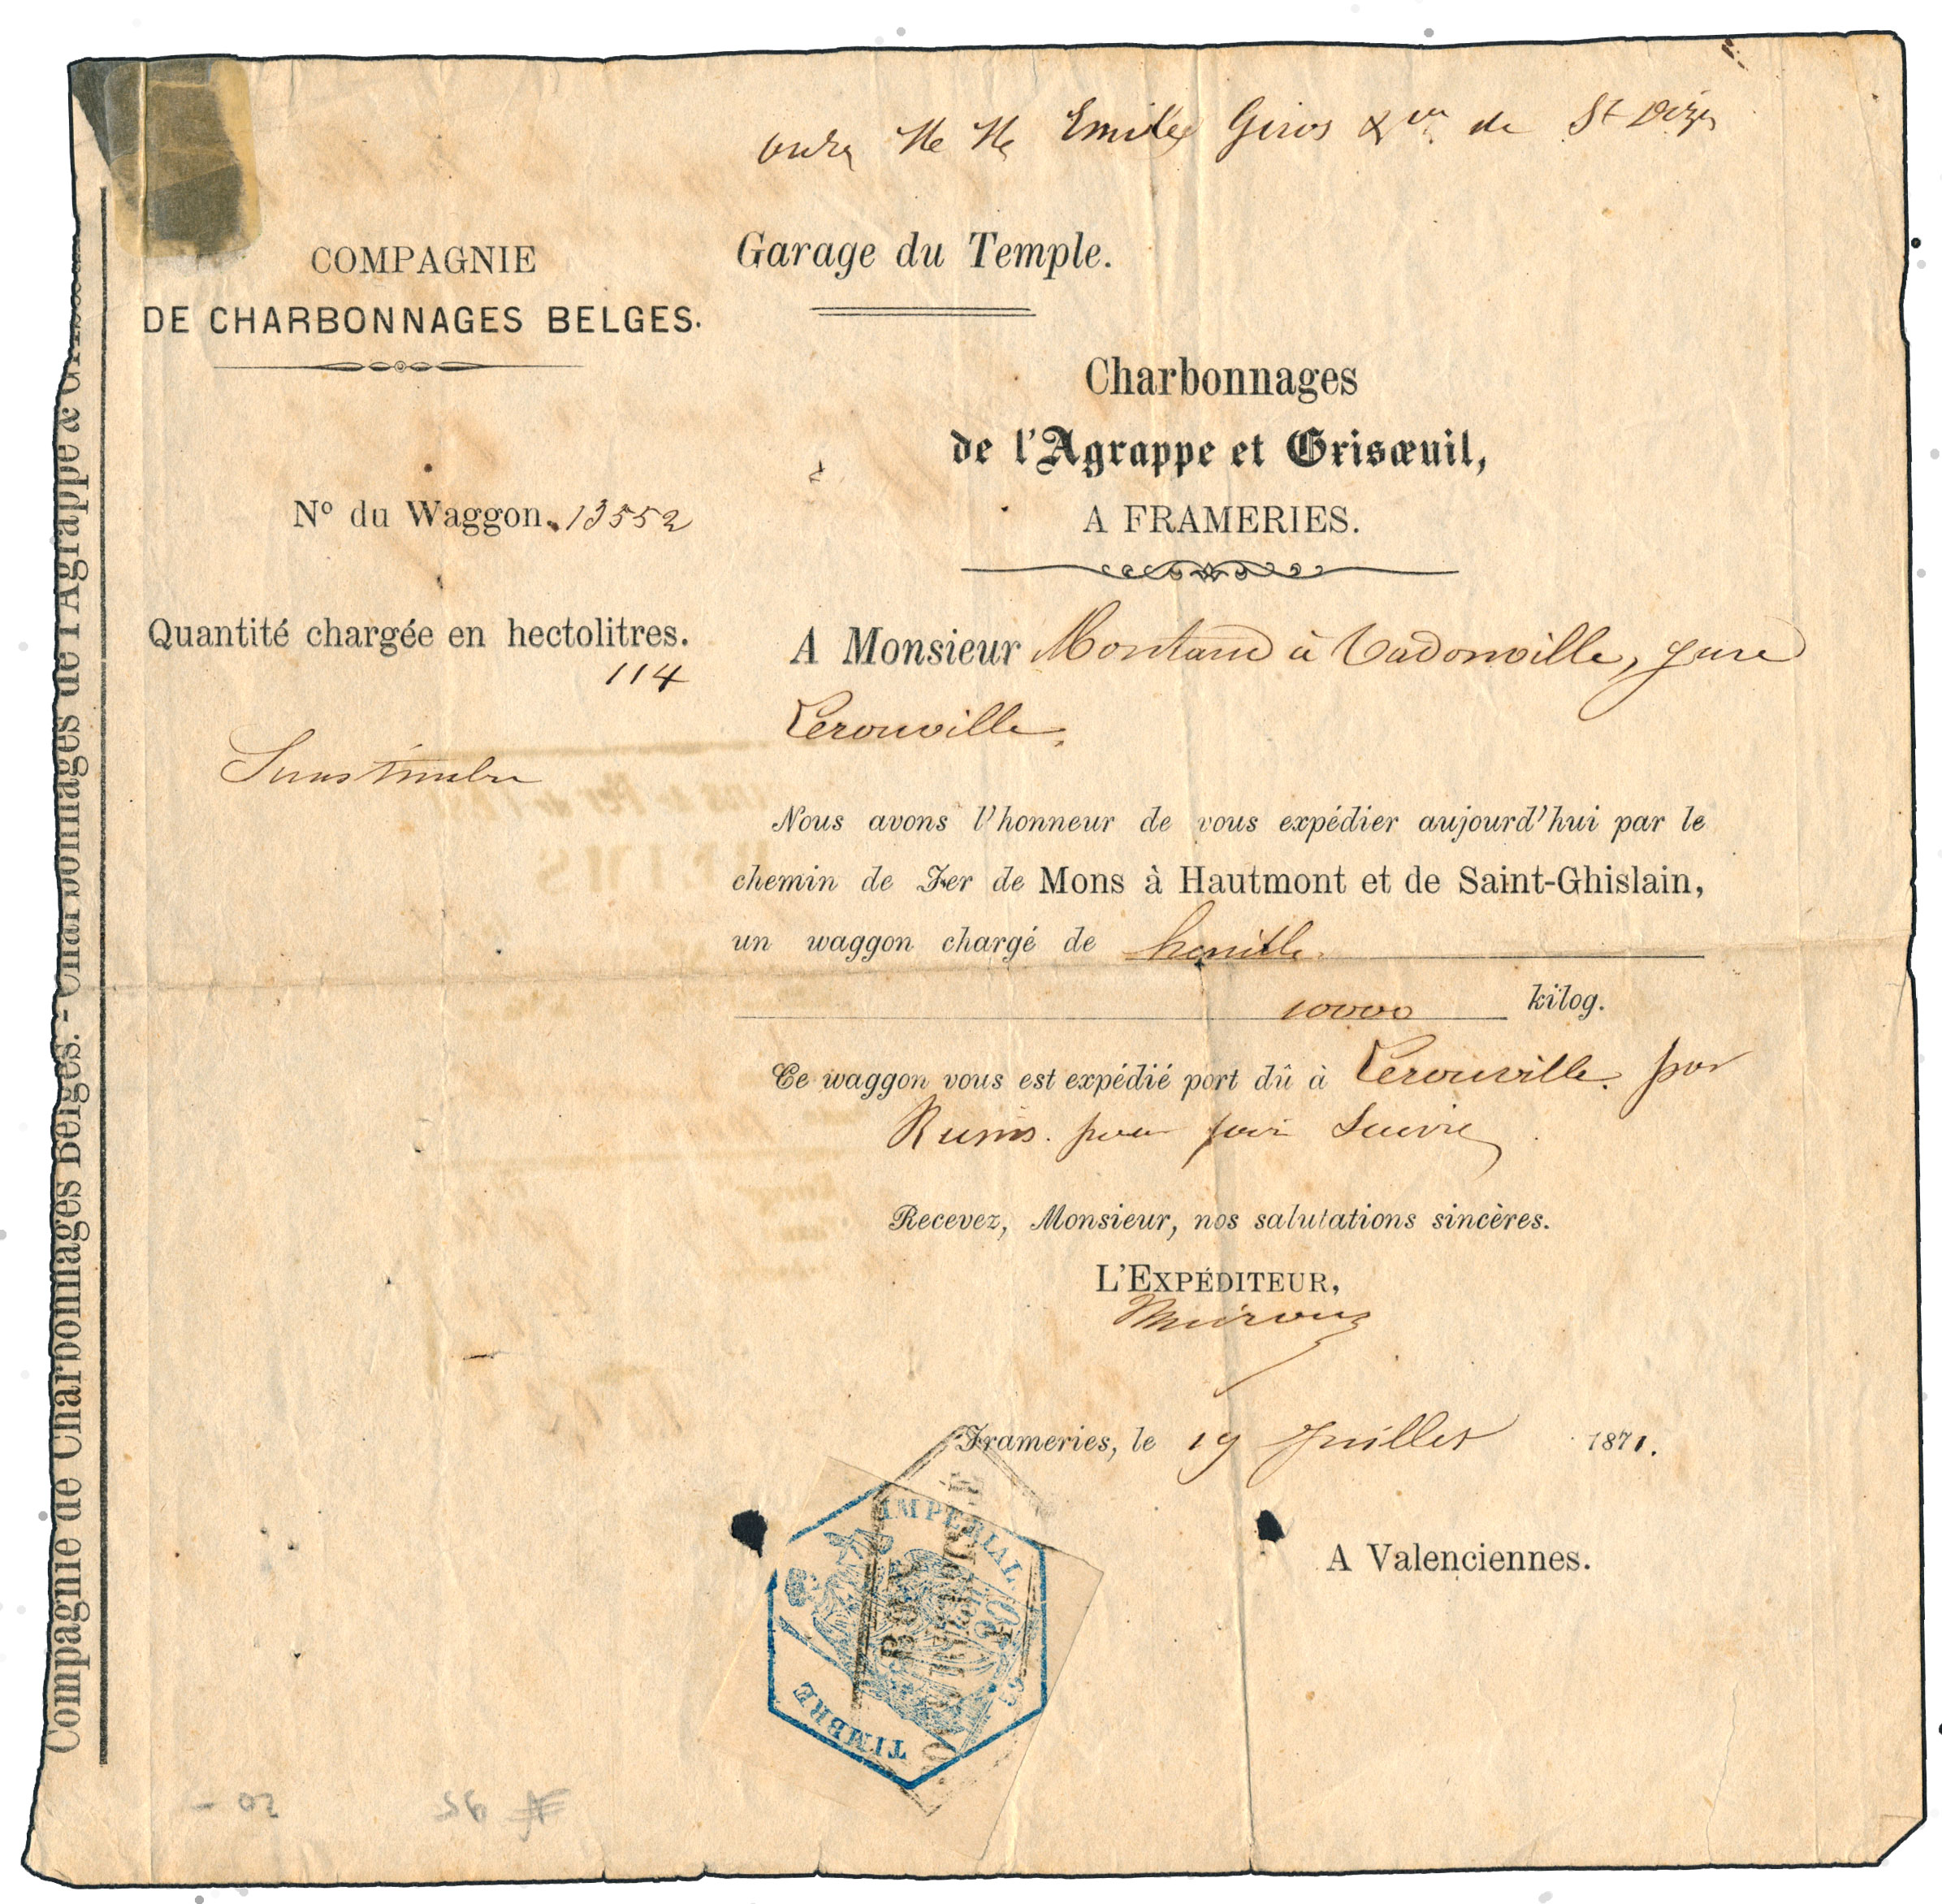 ordre M M Emile Giros & Cie de St Dizier
COMPAGNIE
DE CHARBONNAGES BELGES.
Garage du Temple.
Charbonnages
de l'Agrappe et Grisœuil,
A FRAMERIES.
N° du Waggon. 13552
Quantité chargée en hectolitres.
114
Sans timbre
A Monsieur Montard à Vadonville, gare
Lerouville.
Nous avons l'honneur de vous expédier aujourd'hui par le
chemin de Fer de Mons à Hautmont et de Saint-Ghislain,
un waggon chargé de houille.
10000 kilog.
Ce waggon vous est expédié port dû à Lerouville. par
Reims. pour faire suivre
Recevez, Monsieur, nos salutations sincères.
L'EXPÉDITEUR,
Frameries, le 19 Juillet 1871.
A Valenciennes.
IMPERIAL
TIMBRE
59
Compagnie de Charbonnages Belges. - Charbonnages de l'Agrappe &